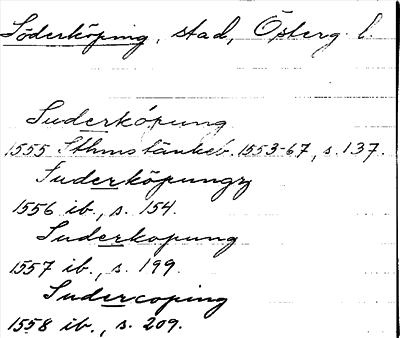 Söderköping, stad, Österg. l.
Suderköpung
1555 Sthms tänkeb. 1553-67, s. 137.
Suderköpungz
1556 ib., s. 154.
Suderkopung
1557 ib., s. 199.
Sudercoping
1558 ib., s. 209.